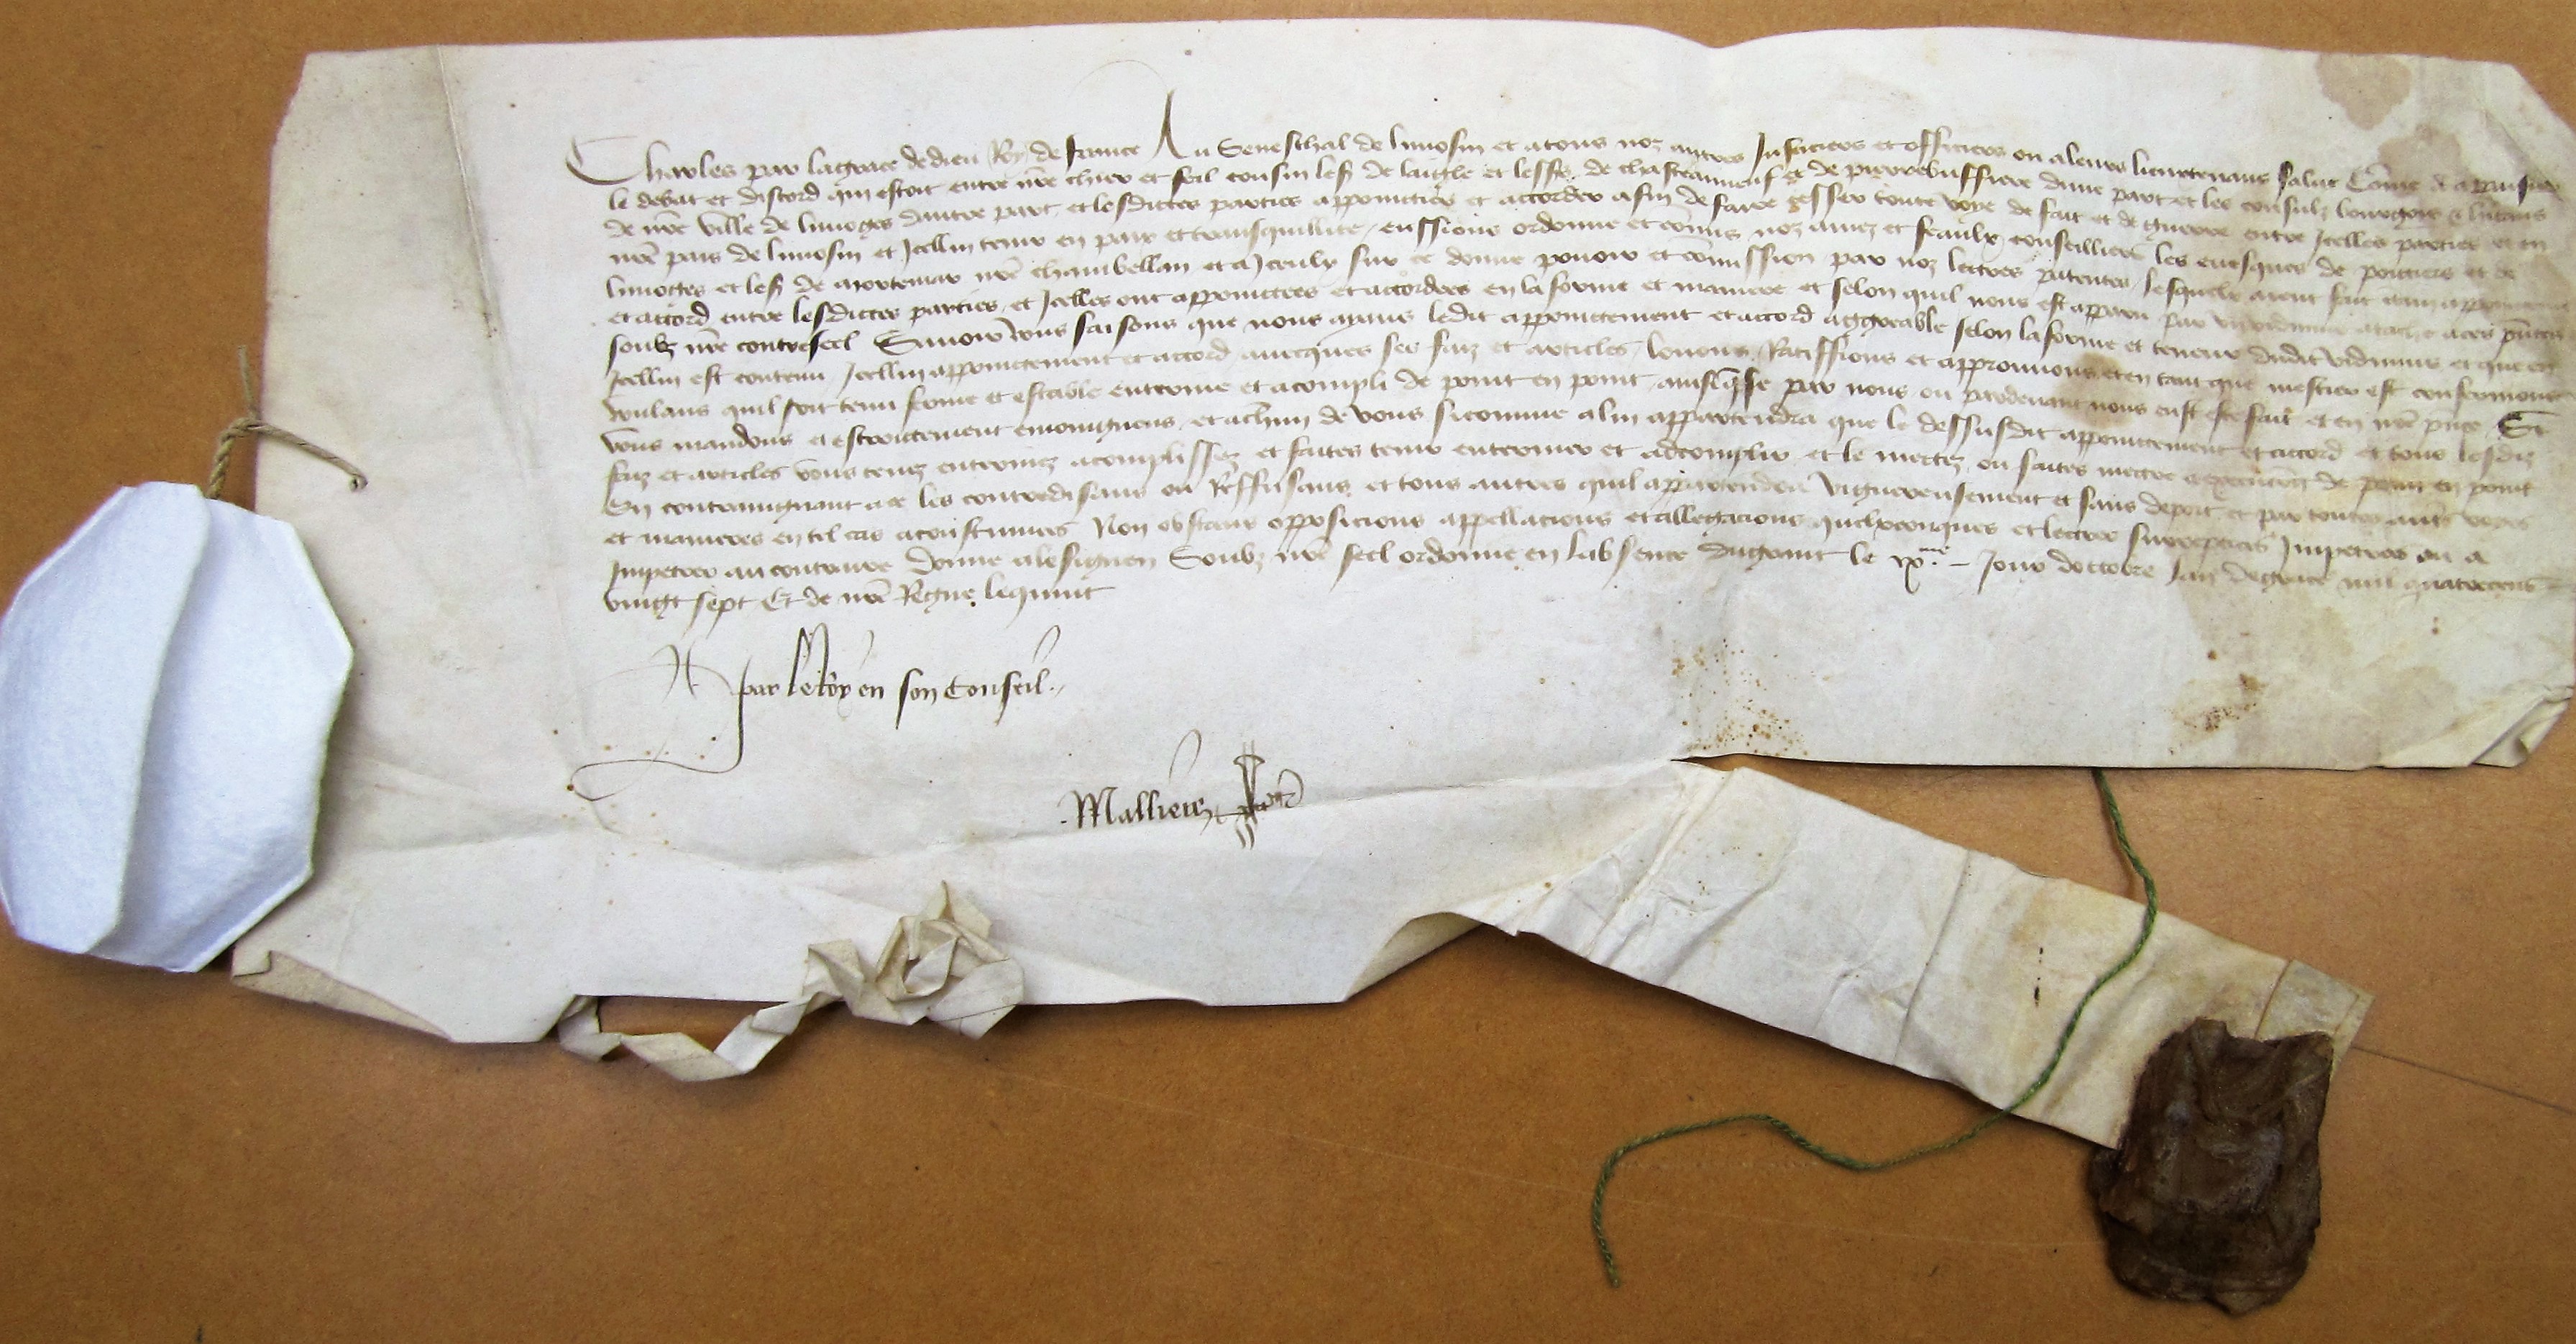 Charles par la grace de dieu Roy de france Au Seneschal de limosin et a tous noz autres Justiciers et officiers ou a leurs lieuxtenans salut Comme
le debat et discord qui estoit entre nre chier et feal cousin le sr de laigle et les srs de chasteauneuf et de pierrebuffiere dune part et les consulz bourgois
de nre ville de limoges dautre part et lesdictes parties appointier et accorder afin de faire cesser toute voye de fait et de guerre entre Icelles parties et en
nre pais de limosin et Icellui tenir en paix et transquillite eussions ordonne et comis noz amez et feaulx conseilliers les evesques de poitiers et de
limoges et le sr de mortemar nre chambellan et a Iceulx sur ce donne povoir et comission par noz lectres patentes lesquels aient fait
et accord entre lesdictes parties et Icelles ont appointees et accordees en la forme et maniere et selon quil nous est apparu par vidimus atache a ces
soubz nre contreseel Savoir vous faisons que nous ayans ledit appointement et accord aggreable selon la forme et teneur dudit vidimus et que en
Icellui est contenu Icellui appointement et accord avecques ses faiz et articles louons Ratiffions et approuvons et en tant que mestier est confermons
voulans quil soit tenu ferme et estable enterine et acompli de point en point ainsi que se par nous ou pardevant nous eust este fait et en nre Si
vous mandons et estroictement enioingnons et a chun de vous si comme a lui appartendra que le dessusdit appointement et accord et tous lesdiz
faiz et articles vous tenez enterinez acomplissez et faites tenir enteriner et adcomplir et le mectez ou faites mectre a execucion de point en point
En contraingnant a ce les contredisans ou Reffusans et tous autres quil appartendra viguereusement et sans deport et par toutes autres voyes
et manieres en tel cas acoustumees Non obstans opposicions appellacions et allegacions quelxconques et lectres surreptices Impetrees ou a
Impetrer au contraire donne a lesignen Soubz nre seel ordonne en labsence du grant le ixme Jour doctobre lan de grace mil quatrecens
vingt sept Et de nre Regne le quint
par le Roy en son Conseil
Malliere